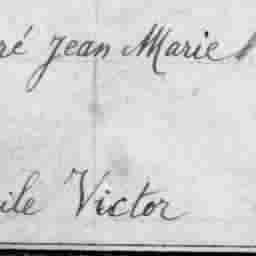 ré Jean Marie
ile Victor